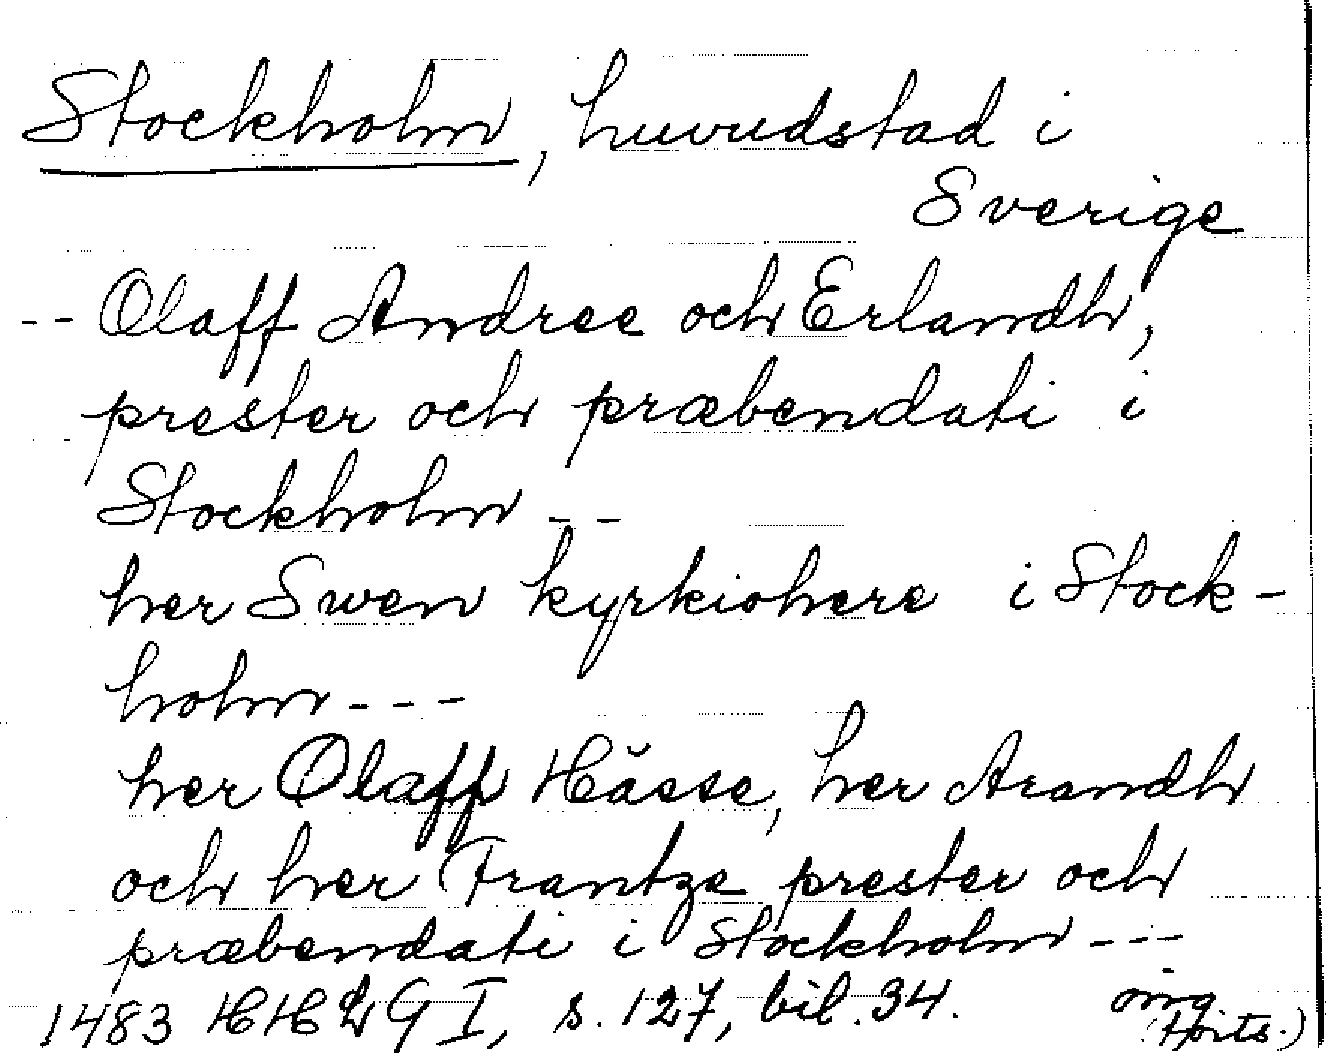 Stockholm, huvudstad i
Sverige
-- Olaff Andree och Erlandh,
prester och præbendati i
Stockholm --
her Swen kyrkiohere i Stock-
holm ---
her Olaff Håsse, her Arandh
och her Frantze prester och
præbendati i Stockholm ---
1483 HH I, s. 127, bil. 34.
(Forts.)